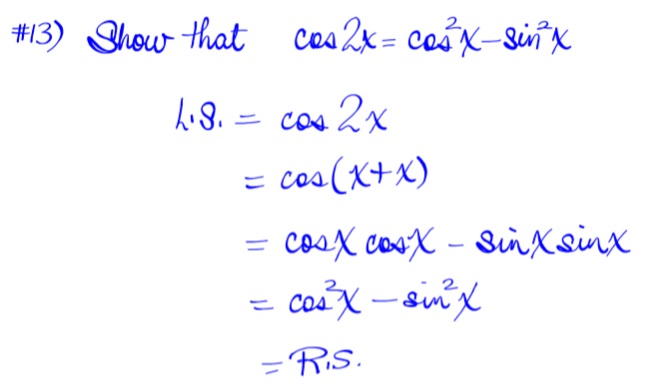 #13) Show that cos2x = cos²x - sin²x
L.S. = cos 2x
= cos(x+x)
= cosx cosx - sinx sinx
= cos²x - sin²x
= R.S.